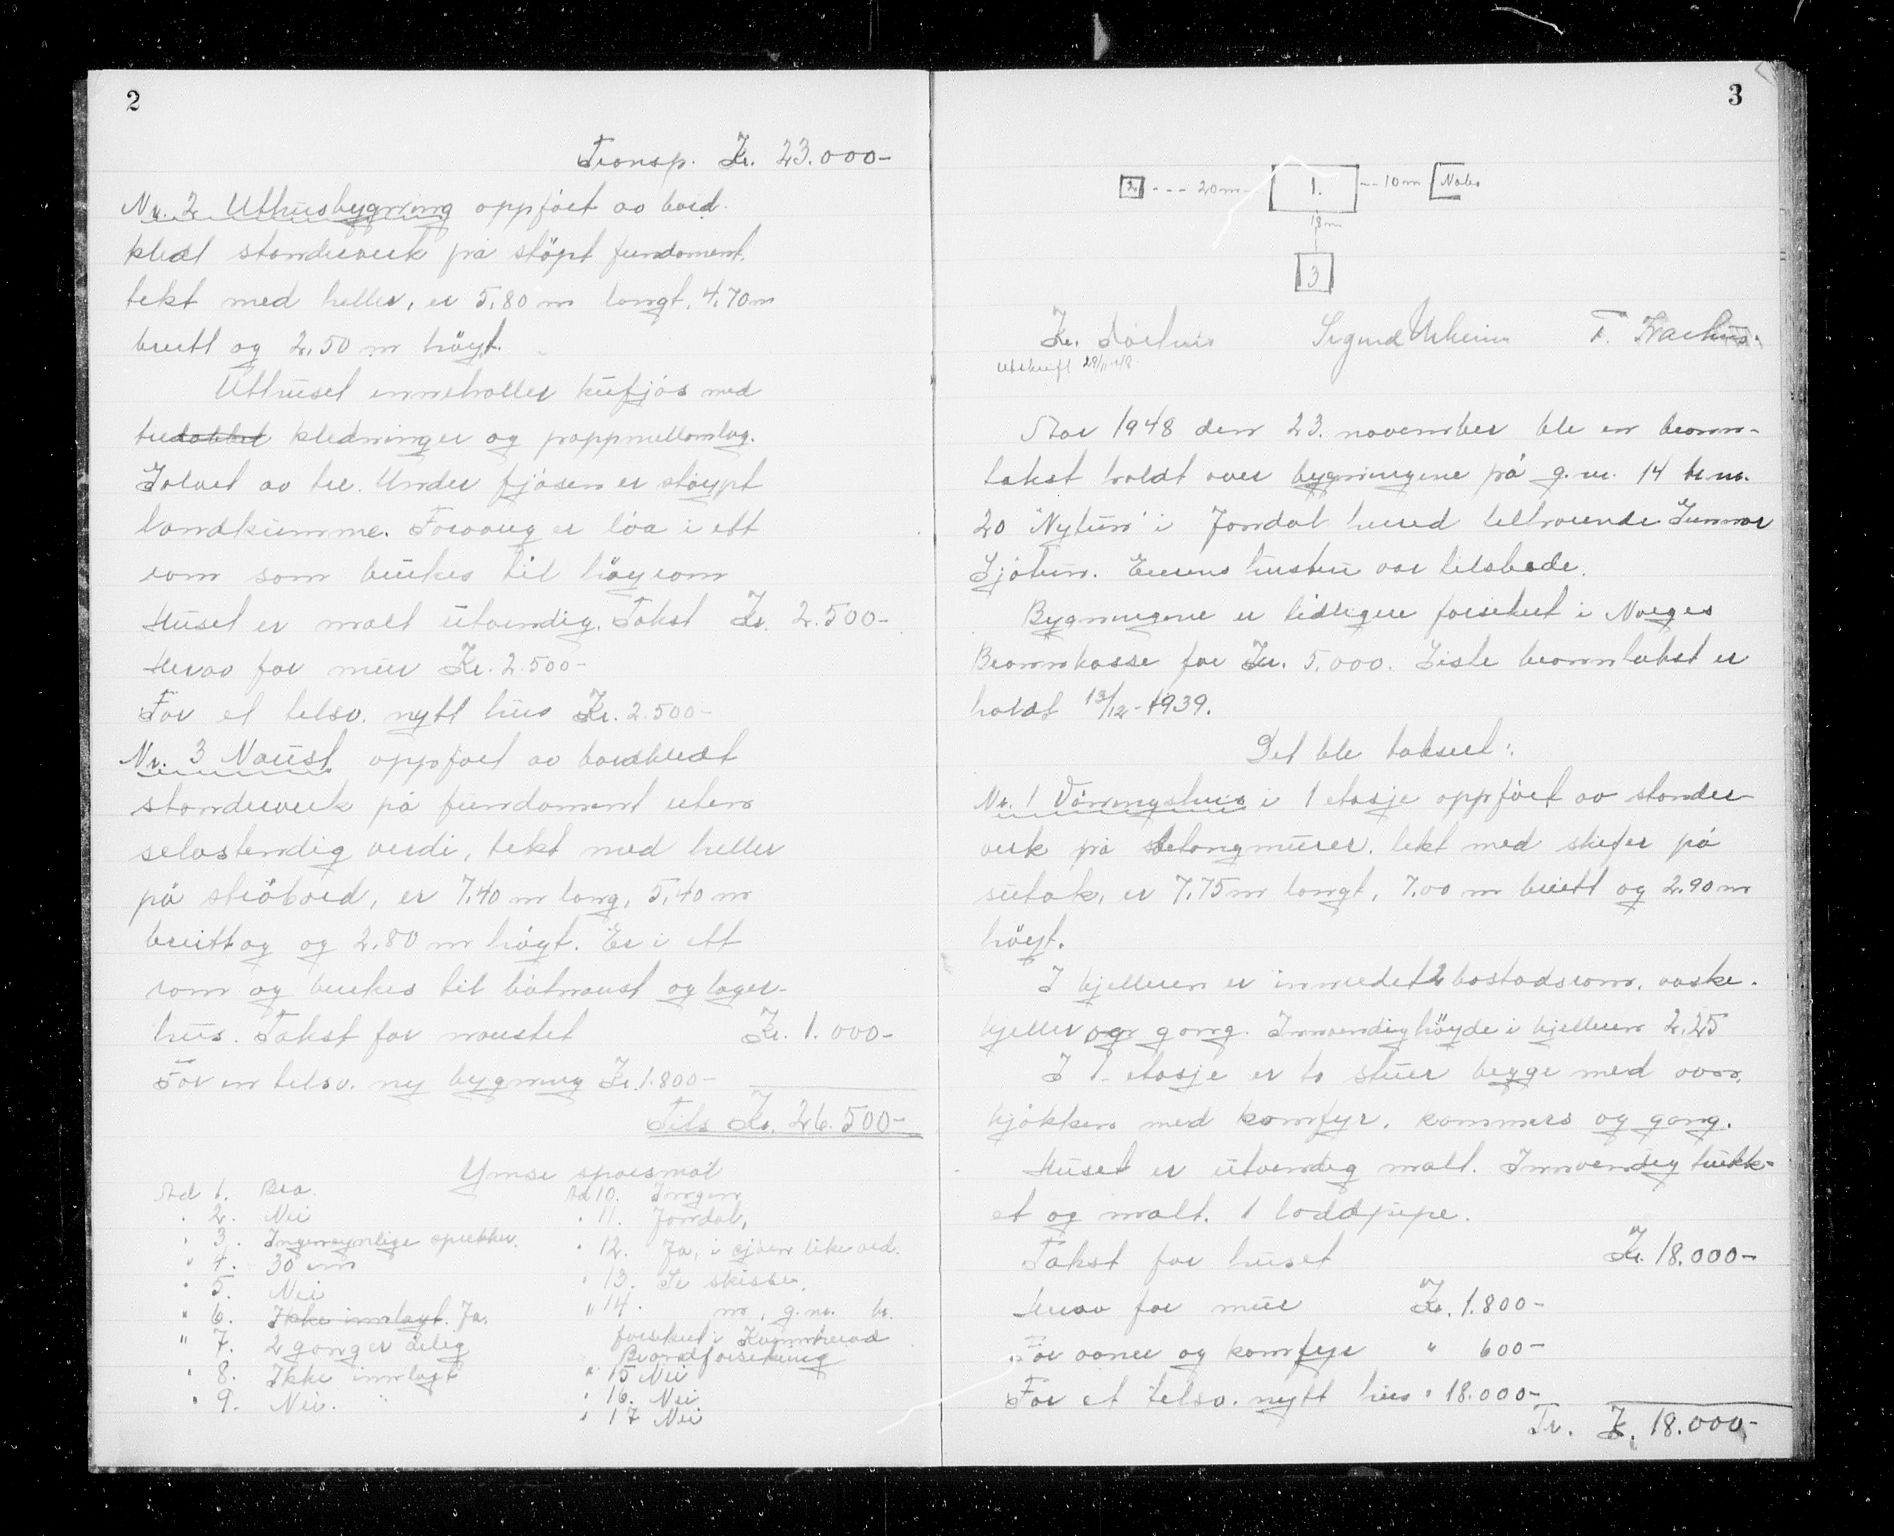 2
Transp. Kr. 23.000-
Nr. 2 Uthusbygning oppført av bord-
kledt standerverk på støpt fundament,
tekt med heller, er 5,80 m langt, 4,70 m
breitt og 2,50 m høgt.
Uthuset inneholder kufjøs med
kledninger og pappmellomlag.
Golvet av tre. Under fjøsen er støypt
landkumme. Foroaug er løa i ett
rom som brukes til høyrom
Huset er malt utvendig. Takst Kr. 2.500-
Herav for mur Kr. 2.500-
For et tilsv. nytt hus Kr. 2.500-
Nr. 3 Naust oppført av bordkledt
standerverk på fundament uten
selvstendig verdi, tekt med heller
på strøbord, er 7,40 m lang, 5,40 m
breitt og og 2,80 m høgt. Er i ett
rom og brukes til båtnaust og lager-
hus. Takst for naustet Kr. 1.000-
For en tilsv. ny bygning Kr. 1.800-
Tils Kr. 26.500-
Ymse spørsmål
Ad 1. Bra.
" 2. Nei
" 3. Ingen synlige sprekker.
" 4. 30 cm
" 5. Nei
" 6. Ikke innlagt. Ja.
" 7. 2 gonger årleg
" 8. Ikke innlagt
" 9. Nei.
Ad 10. Ingen
" 11. Jondal,
" 12. Ja, i sjøen like ved.
" 13. Se skisse.
" 14. nr, g.nr. br.
forsikret i Kvinnherad
Brandforsikring
" 15 Nei
" 16. Nei
" 17 Nei
3
2 --- 20m- 1. --10m Nabo
18m
3
Kr. Sigurd Utheim F.
Utskrift 29/11-48
Aar 1948 den 23. november ble en brann-
takst holdt over bygningene på g.nr. 14 br.nr.
20 "Nytun" i Jondal herred tilhørende Gunnar
Sjøtun. Eierens hustru var tilstede.
Bygningene er tidligere forsikret i Norges
Brannkasse for Kr. 5.000. Siste branntakst er
holdt 13/12-1939.
Det ble taksert:
Nr. 1 Våningshus i 1 etasje oppført av stander-
verk på betongmurer, tekt med skifer på
sutak, er 7,75 m langt, 7,00 m breitt og 2,90 m
høgt.
I kjelleren er innredet 2 bostadsrom, vaske-
kjeller og gang. Innvendig høyde i kjelleren 2,25
I 1. etasje er to stuer begge med ovn,
kjøkken med komfyr, kammers og gang.
Huset er utvendig malt. Innvendig trekk-
et og malt. 1 loddpipe.
Takst for huset Kr. 18.000-
Herav for mur Kr. 1.800-
For ovner og komfyr " 600-
For et tilsv. nytt hus " 18.000-
Tr. Kr. 18.000-